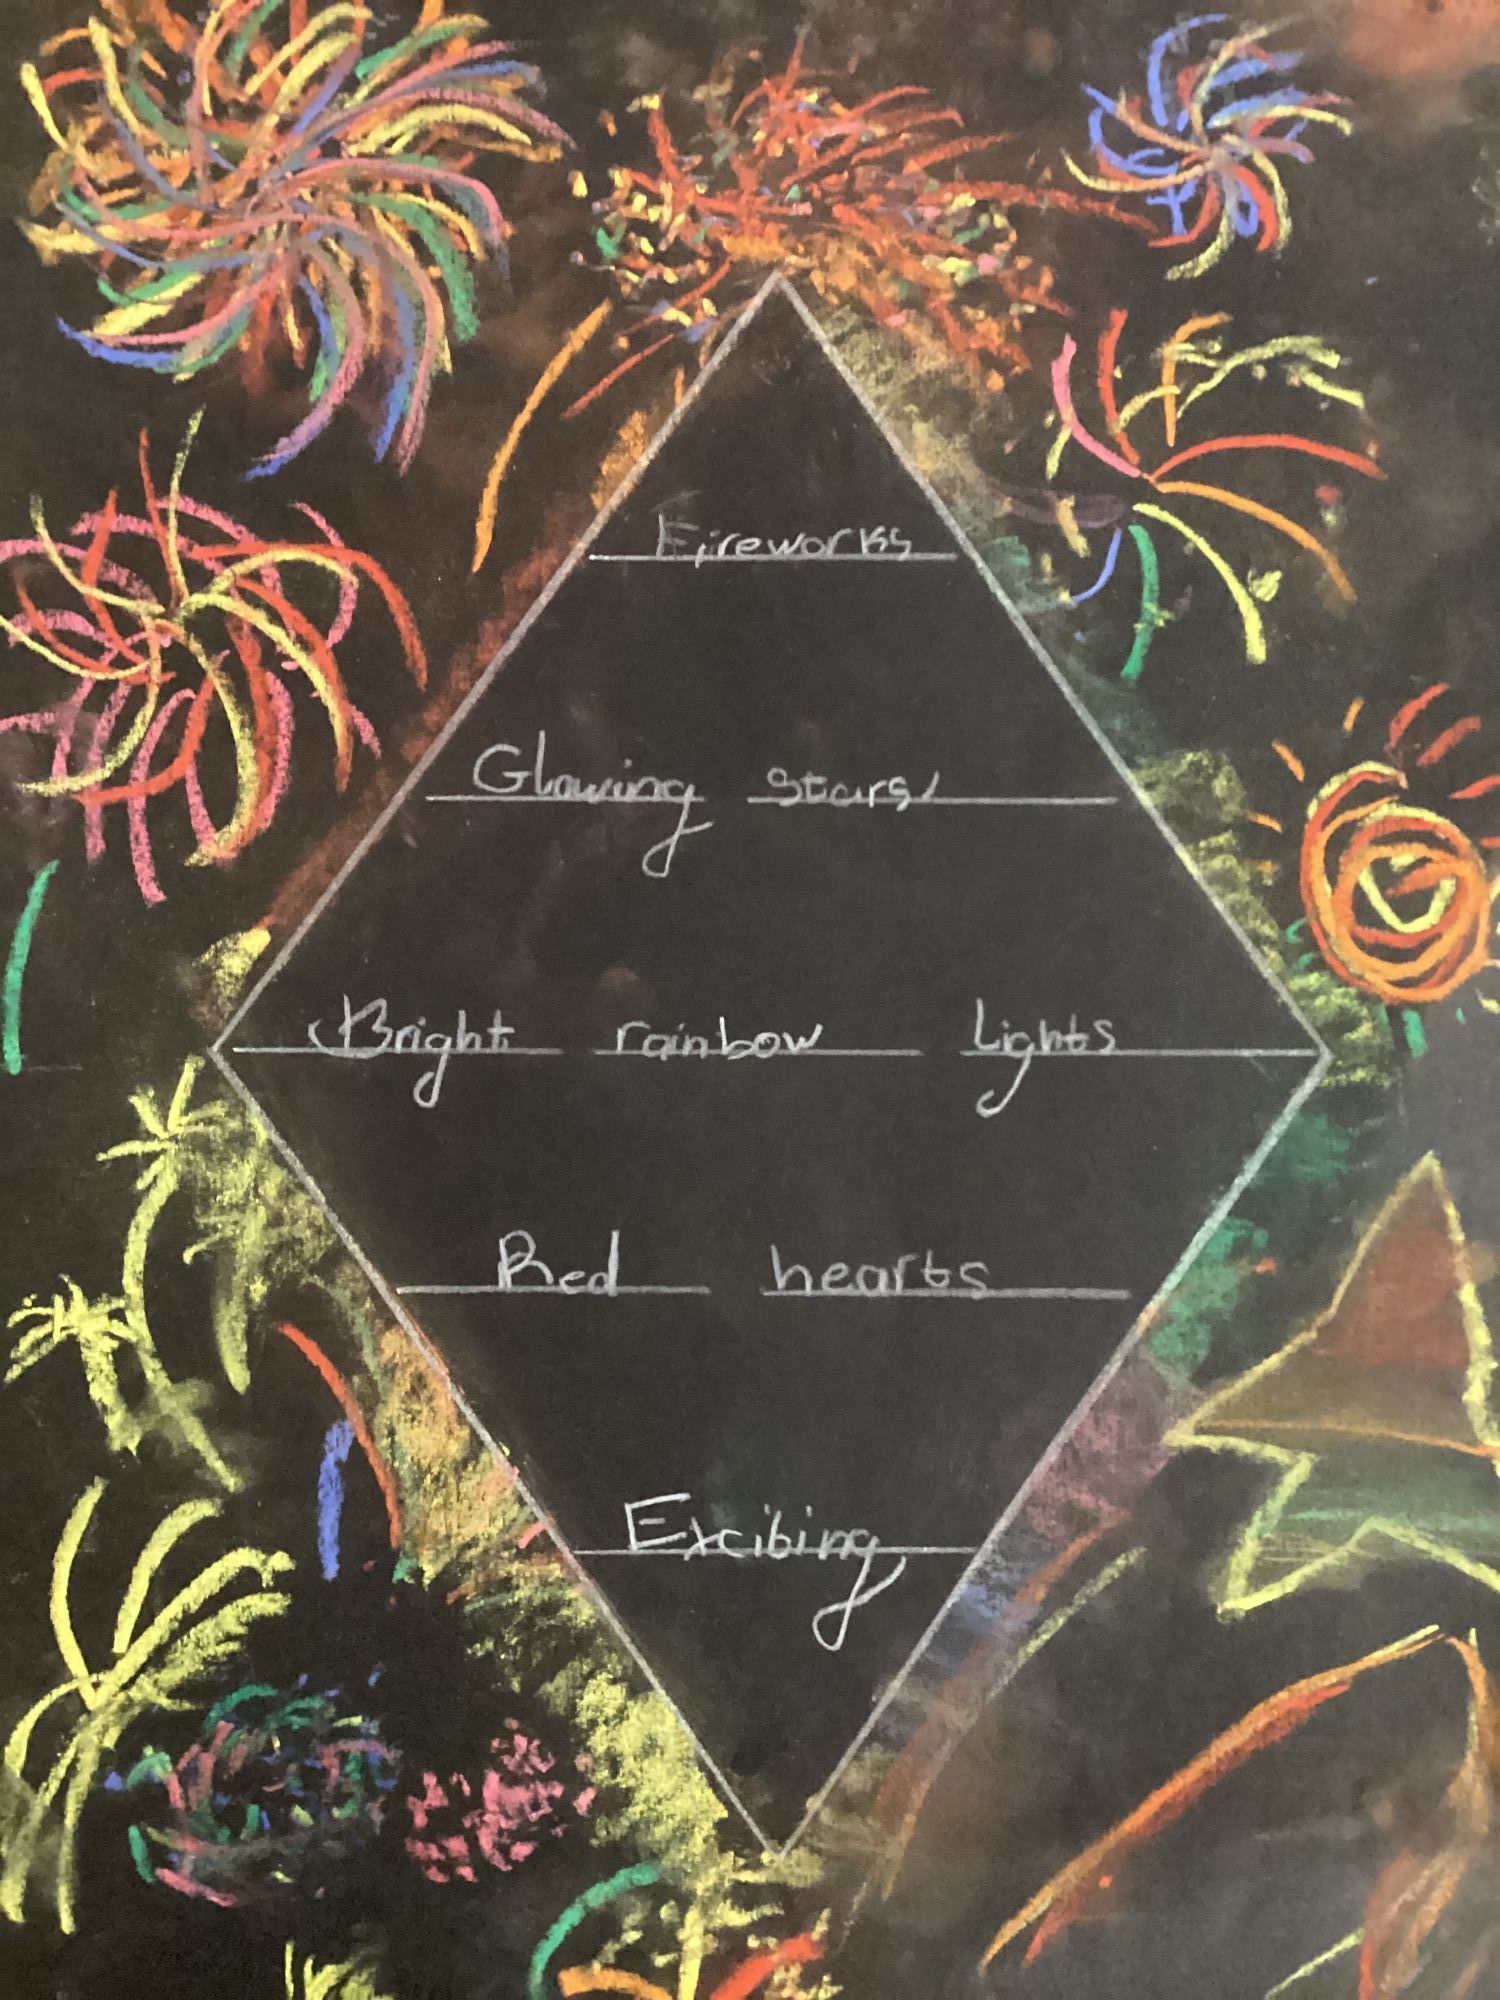 Fireworks
Glowing stars
Bright rainbow Lights
Red hearts
Excibing